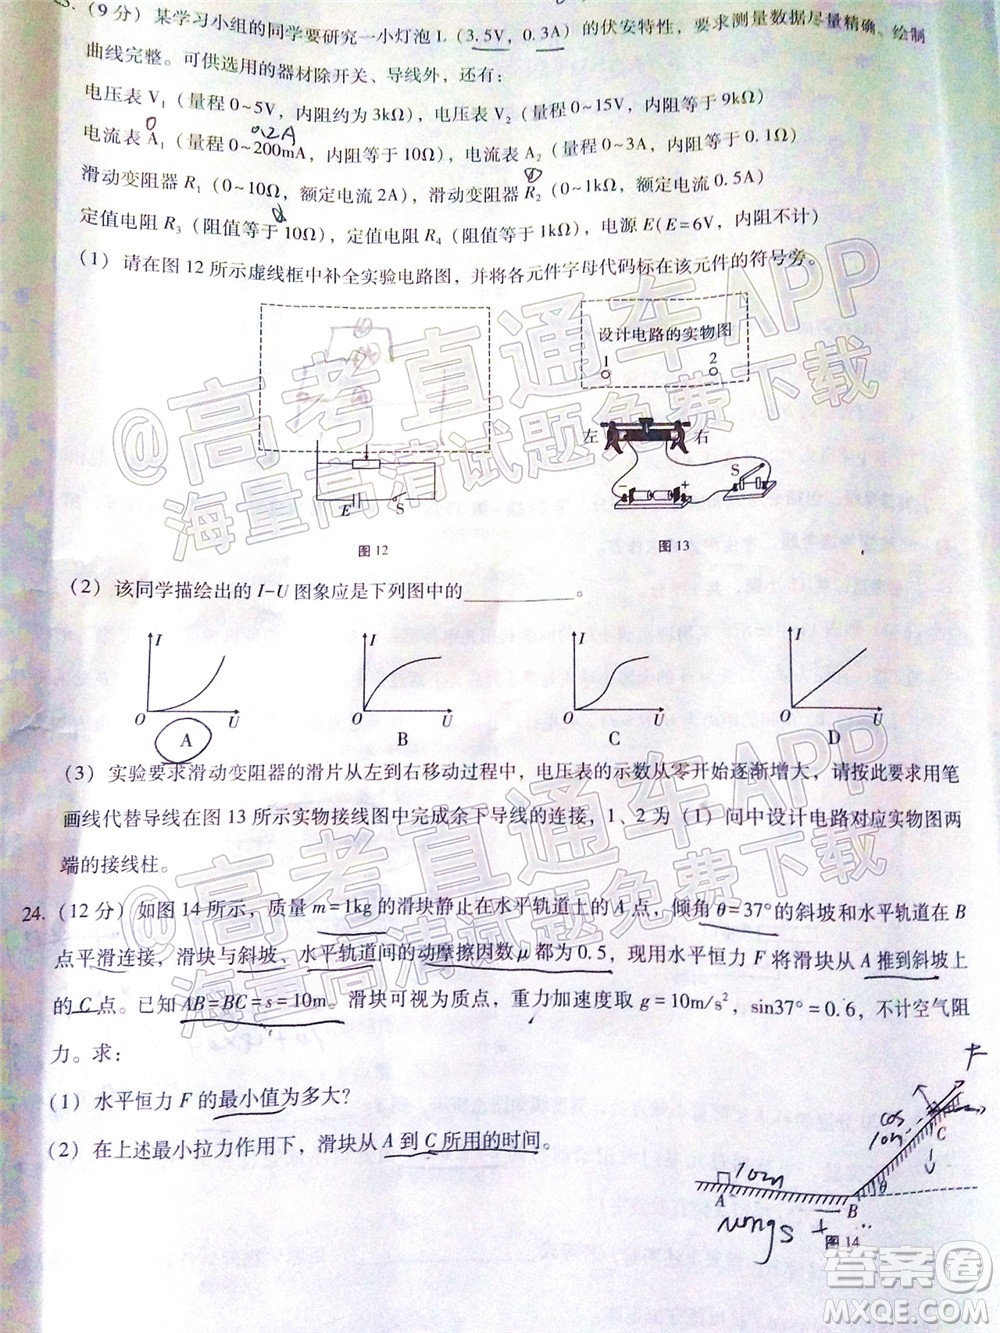 （9 分）某学习小组的同学要研究一小灯泡 L（3.5V, 0.3A）的伏安特性，要求测量数据尽量精确、绘制
曲线完整。可供选用的器材除开关、导线外，还有：
电压表 V₁（量程 0~5V，内阻约为 3kΩ）电压表 V₂（量程 0~15V，内阻等于 9kΩ）
0.2A
电流表 A₁（量程 0~200mA，内阻等于 10Ω），电流表 A₂（量程 0~3A，内阻等于 0.1Ω）
滑动变阻器 R₁（0~10Ω，额定电流 2A），滑动变阻器 R₂（0~1kΩ，额定电流 0.5A）
定值电阻 R₃（阻值等于 10Ω），定值电阻 R₄（阻值等于 1kΩ），电源 E（E=6V，内阻不计）
（1）请在图 12 所示虚线框中补全实验电路图，并将各元件字母代码标在该元件的符号旁。
设计电路的实物图
1 2
左 右
S
E S
- +
图 12 图 13
（2）该同学描绘出的 I-U 图象应是下列图中的__________。
I I I I
O U O U O U O U
A B C D
（3）实验要求滑动变阻器的滑片从左到右移动过程中，电压表的示数从零开始逐渐增大，请按此要求用笔
画线代替导线在图 13 所示实物接线图中完成余下导线的连接，1、2 为（1）问中设计电路对应实物图两
端的接线柱。
24.（12 分）如图 14 所示，质量 m=1kg 的滑块静止在水平轨道上的 A 点，倾角 θ=37° 的斜坡和水平轨道在 B
点平滑连接，滑块与斜坡、水平轨道间的动摩擦因数 μ 都为 0.5，现用水平恒力 F 将滑块从 A 推到斜坡上
的 C 点。已知 AB=BC=s=10m。滑块可视为质点，重力加速度取 g=10m/s²，sin37°=0.6，不计空气阻
力。求：
（1）水平恒力 F 的最小值为多大？
（2）在上述最小拉力作用下，滑块从 A 到 C 所用的时间。
F
cos
10m C
10m
A B θ
umgs +
图 14
@高考直通车APP
海量高清试题免费下载
@高考直通车APP
海量高清试题免费下载
答案圈
MXQE.COM